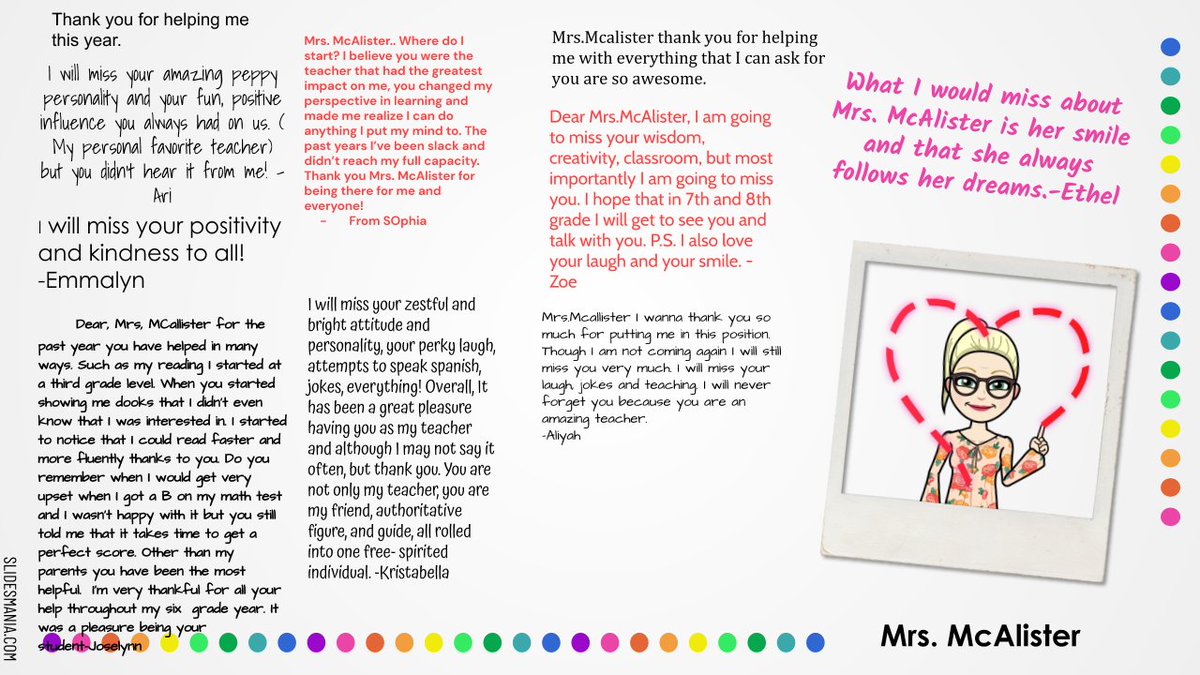 Thank you for helping me
this year.
I will miss your amazing peppy
personality and your fun, positive
influence you always had on us. (
My personal favorite teacher)
but you didn't hear it from me! -
Ari
I will miss your positivity
and kindness to all!
-Emmalyn
Dear, Mrs, MCallister for the
past year you have helped in many
ways. Such as my reading I started at
a third grade level. When you started
showing me dooks that I didn't even
know that I was interested in. I started
to notice that I could read faster and
more fluently thanks to you. Do you
remember when I would get very
upset when I got a B on my math test
and I wasn't happy with it but you still
told me that it takes time to get a
perfect score. Other than my
parents you have been the most
helpful. I'm very thankful for all your
help throughout my six grade year. It
was a pleasure being your
student-Joselynn
Mrs. McAlister.. Where do I
start? I believe you were the
teacher that had the greatest
impact on me, you changed my
perspective in learning and
made me realize I can do
anything I put my mind to. The
past years I've been slack and
didn't reach my full capacity.
Thank you Mrs. McAlister for
being there for me and
everyone!
- From SOphia
I will miss your zestful and
bright attitude and
personality, your perky laugh,
attempts to speak spanish,
jokes, everything! Overall, It
has been a great pleasure
having you as my teacher
and although I may not say it
often, but thank you. You are
not only my teacher, you are
my friend, authoritative
figure, and guide, all rolled
into one free- spirited
individual. -Kristabella
Mrs.Mcalister thank you for helping
me with everything that I can ask for
you are so awesome.
Dear Mrs.McAlister, I am going
to miss your wisdom,
creativity, classroom, but most
importantly I am going to miss
you. I hope that in 7th and 8th
grade I will get to see you and
talk with you. P.S. I also love
your laugh and your smile. -
Zoe
Mrs.Mcallister I wanna thank you so
much for putting me in this position.
Though I am not coming again I will still
miss you very much. I will miss your
laugh, jokes and teaching. I will never
forget you because you are an
amazing teacher.
-Aliyah
What I would miss about
Mrs. McAlister is her smile
and that she always
follows her dreams.-Ethel
Mrs. McAlister
SLIDESMANIA.COM